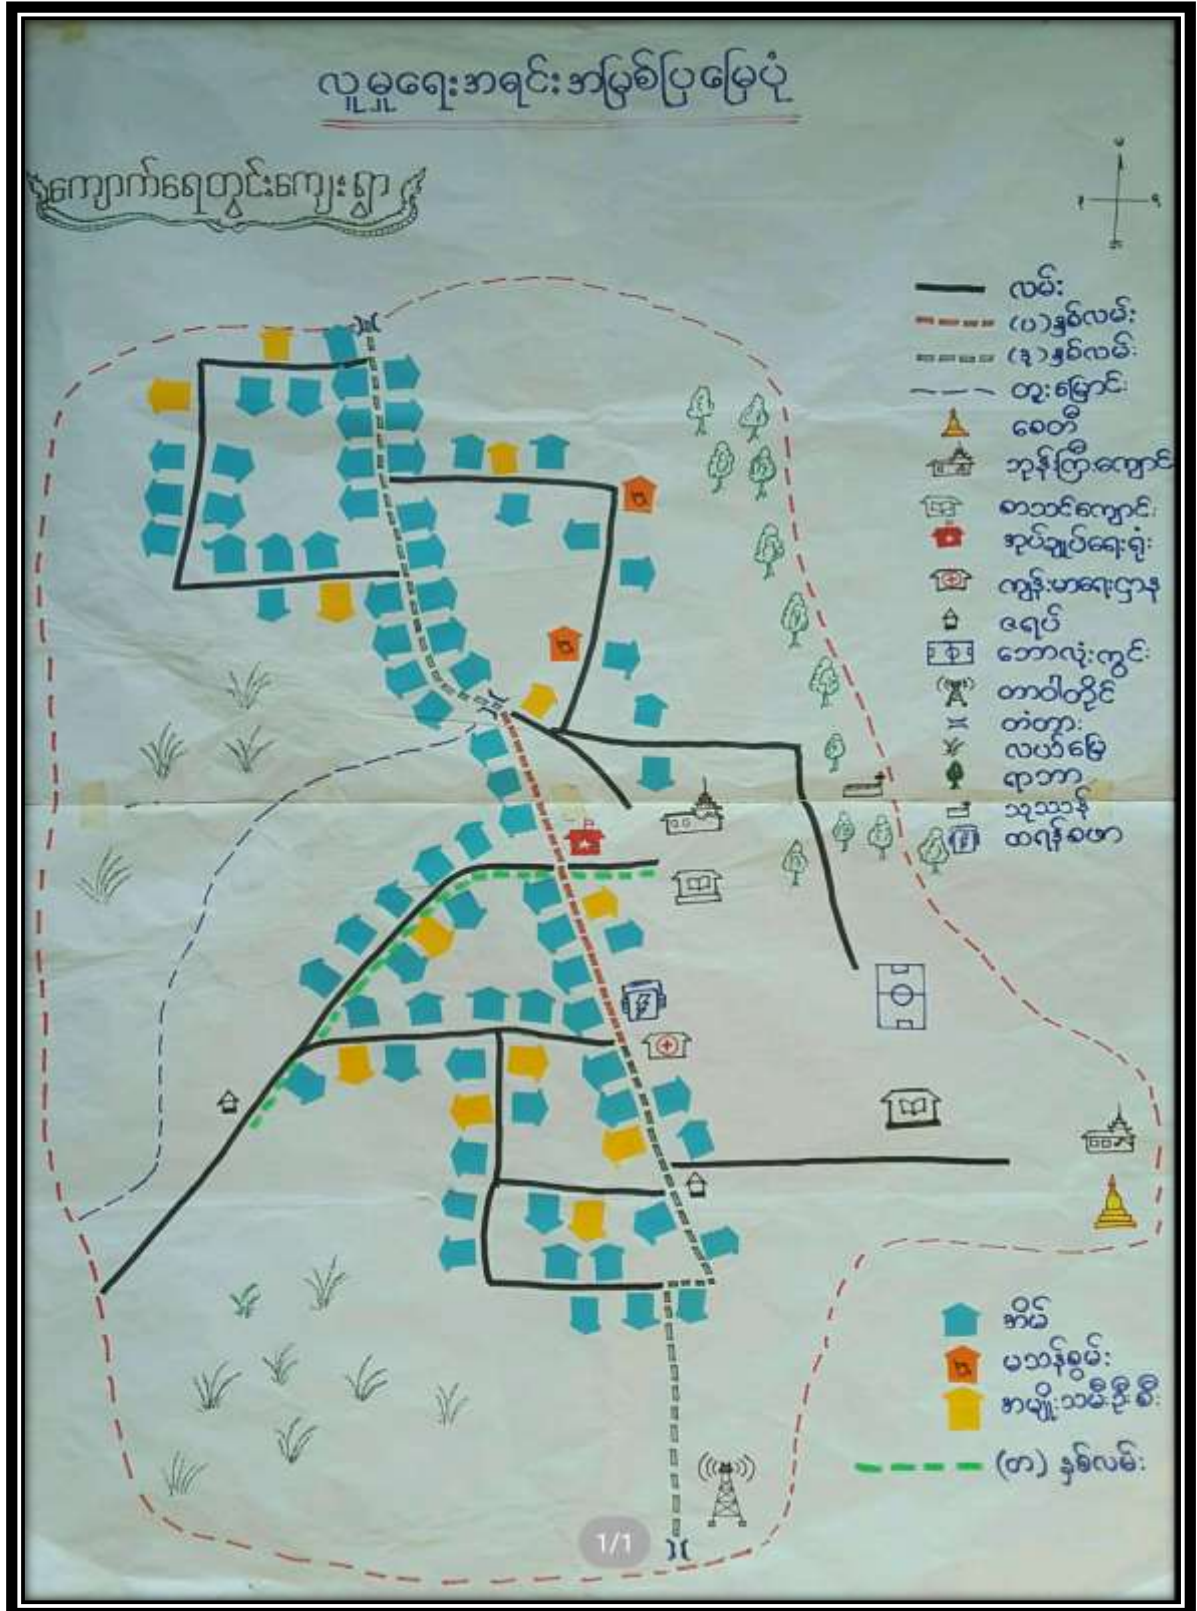 လူမှုရေးအရင်းအမြစ်ပြမြေပုံ
ကျောက်ရေတွင်းကျေးရွာ
လမ်း
(ပ)နှစ်လမ်း
(ဒု)နှစ်လမ်း
တူးမြောင်း
စေတီ
ဘုန်းကြီးကျောင်း
စာသင်ကျောင်း
အုပ်ချုပ်ရေးရုံး
ကျန်းမာရေးဌာန
ဇရပ်
ဘောလုံးကွင်း
တာဝါတိုင်
တံတား
လယ်မြေ
ရာဘာ
သုသာန်
ထရန်စဖာ
အိမ်
မသန်စွမ်း
အမျိုးသမီးဦးစီး
(တ) နှစ်လမ်း
1/1